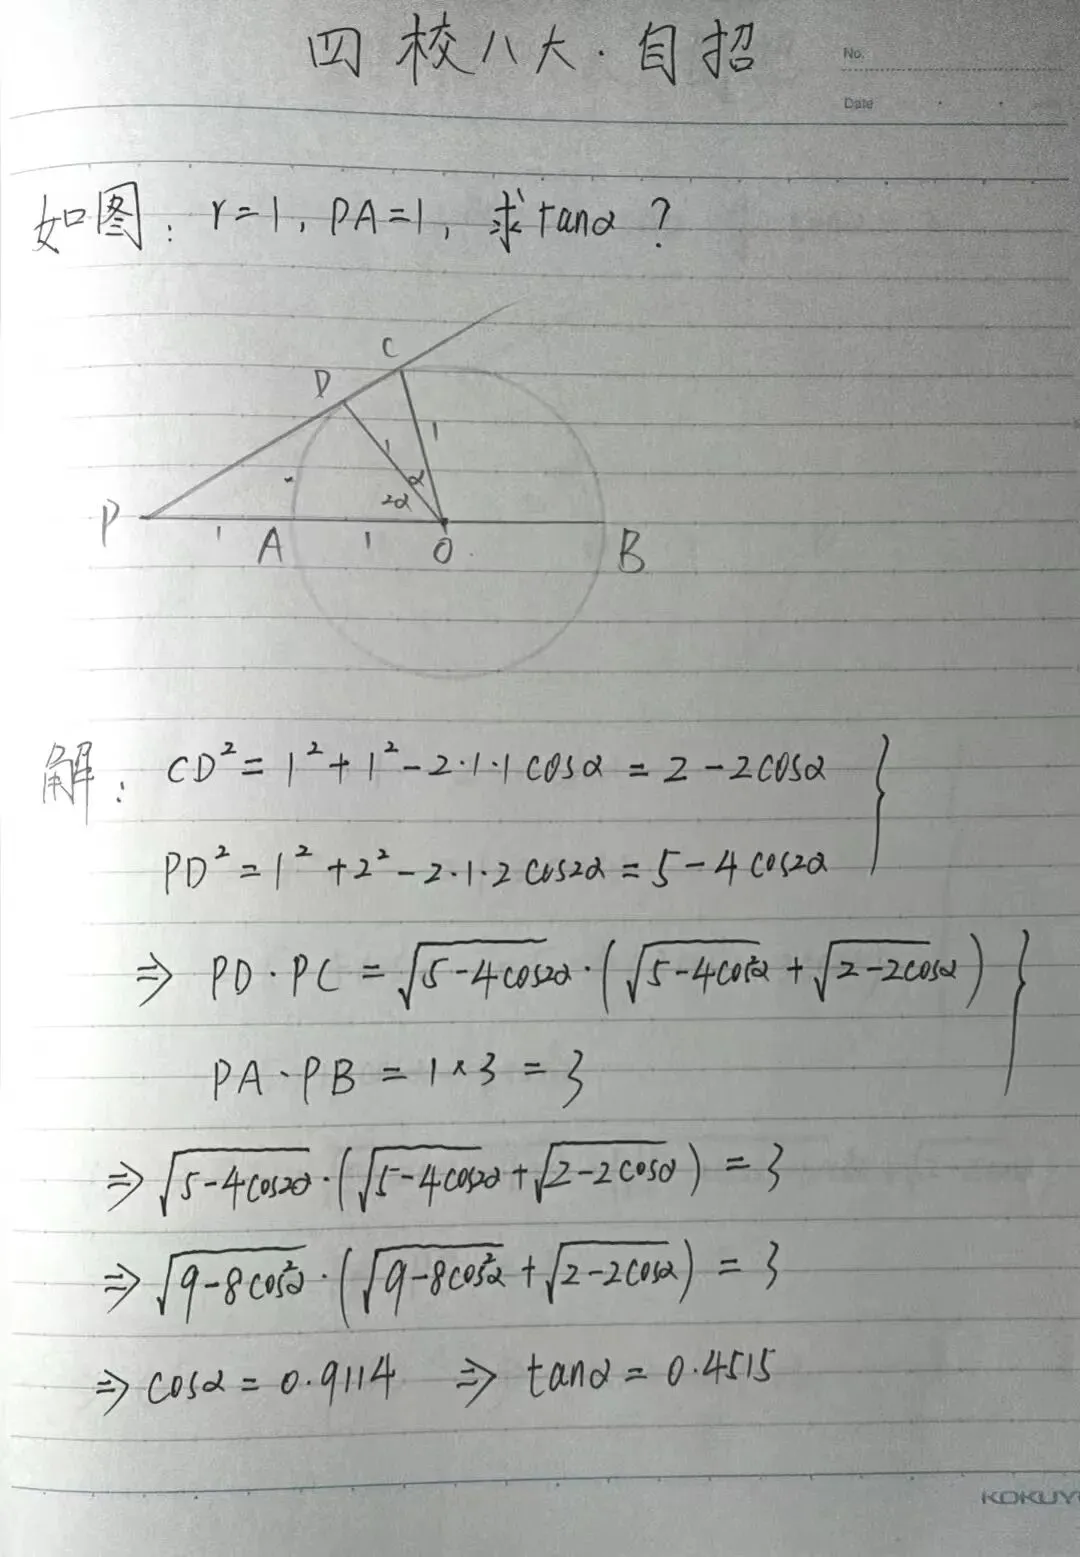 四校八大·自招
No.
Date
如图: r=1, PA=1, 求tanα ?
C
D
1
1
α
2α
P
1
A
1
O
B
解: CD²=1²+1²-2·1·1cosα=2-2cosα
PD²=1²+2²-2·1·2cos2α=5-4cos2α
⇒ PD·PC=√(5-4cos2α)·(√(5-4cos2α)+√(2-2cosα))
PA·PB=1×3=3
⇒√(5-4cos2α)·(√(5-4cos2α)+√(2-2cosα))=3
⇒√(9-8cos²α)·(√(9-8cos²α)+√(2-2cosα))=3
⇒cosα=0.9114 ⇒ tanα=0.4515